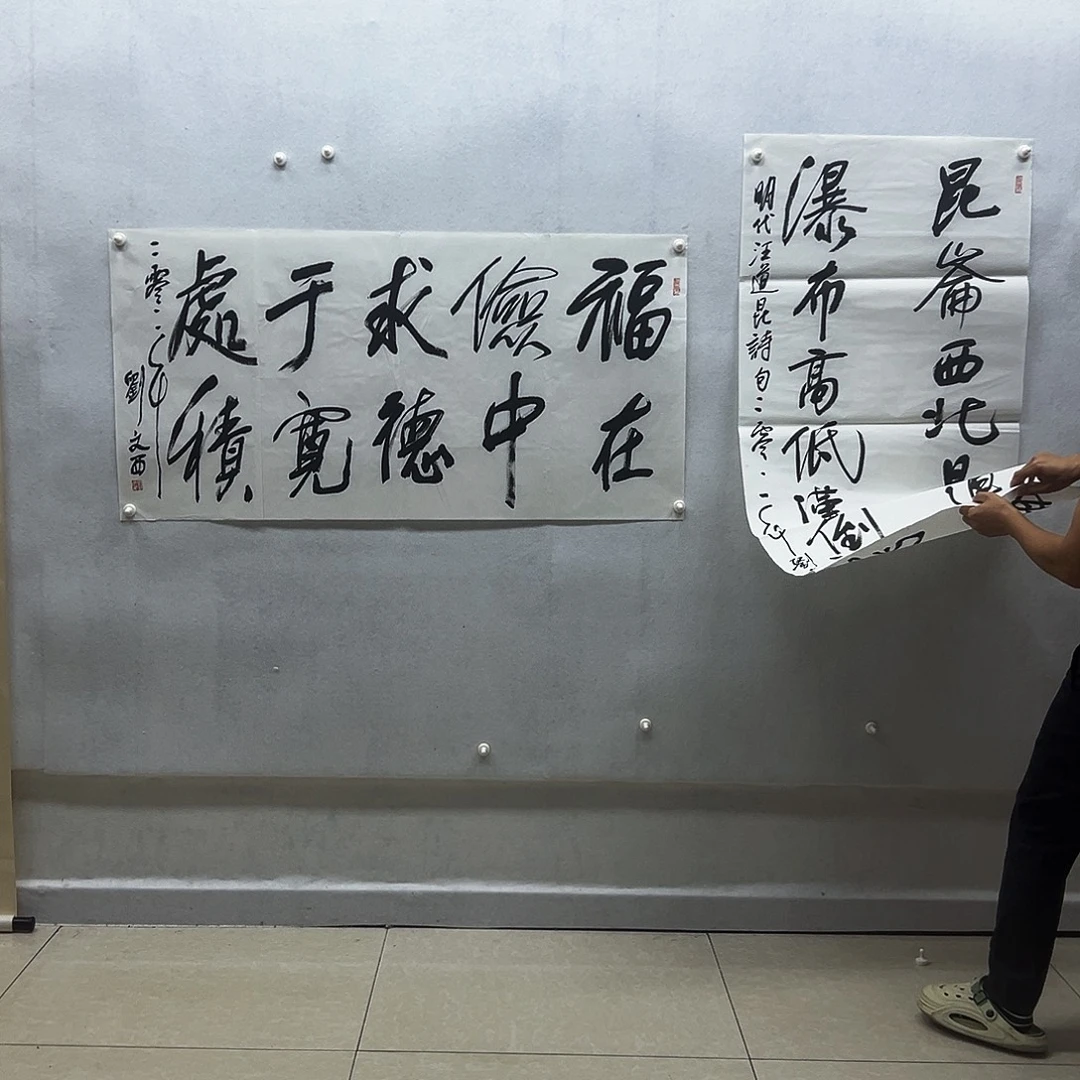 福在
儉中
求德
于寬
處積
二零一二年
劉文西
昆崙西北
瀑布高低漢倒
明代汪道昆詩句二零一二年劉